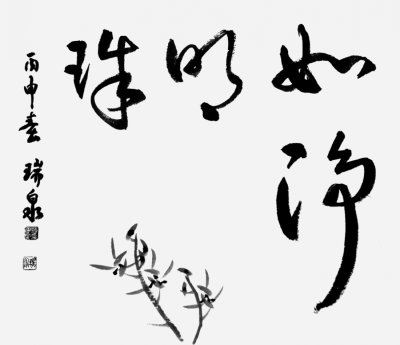 如净
明
珠
丙申春 瑞泉